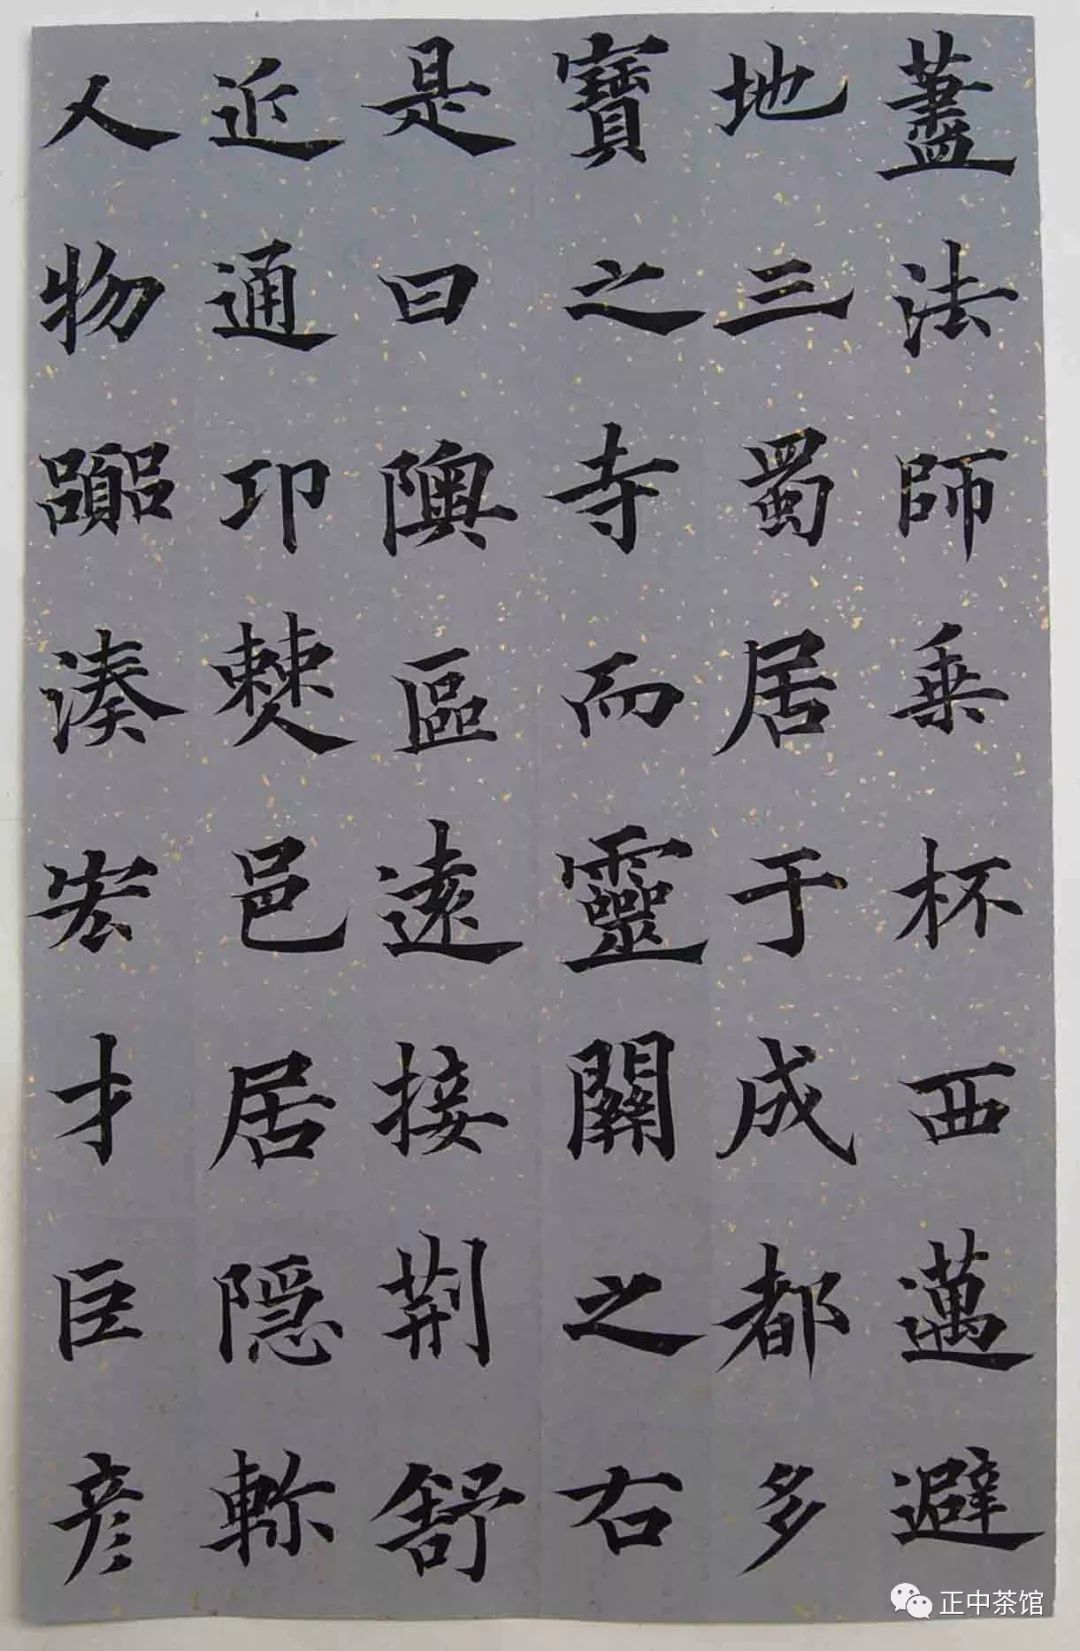 蓋法師乗杯西邁避
地三蜀居于成都多
寶之寺而靈關之右
是曰隩區遠接荊舒
近通邛僰邑居隱軫
人物嚻湊宏才巨彦
正中茶馆